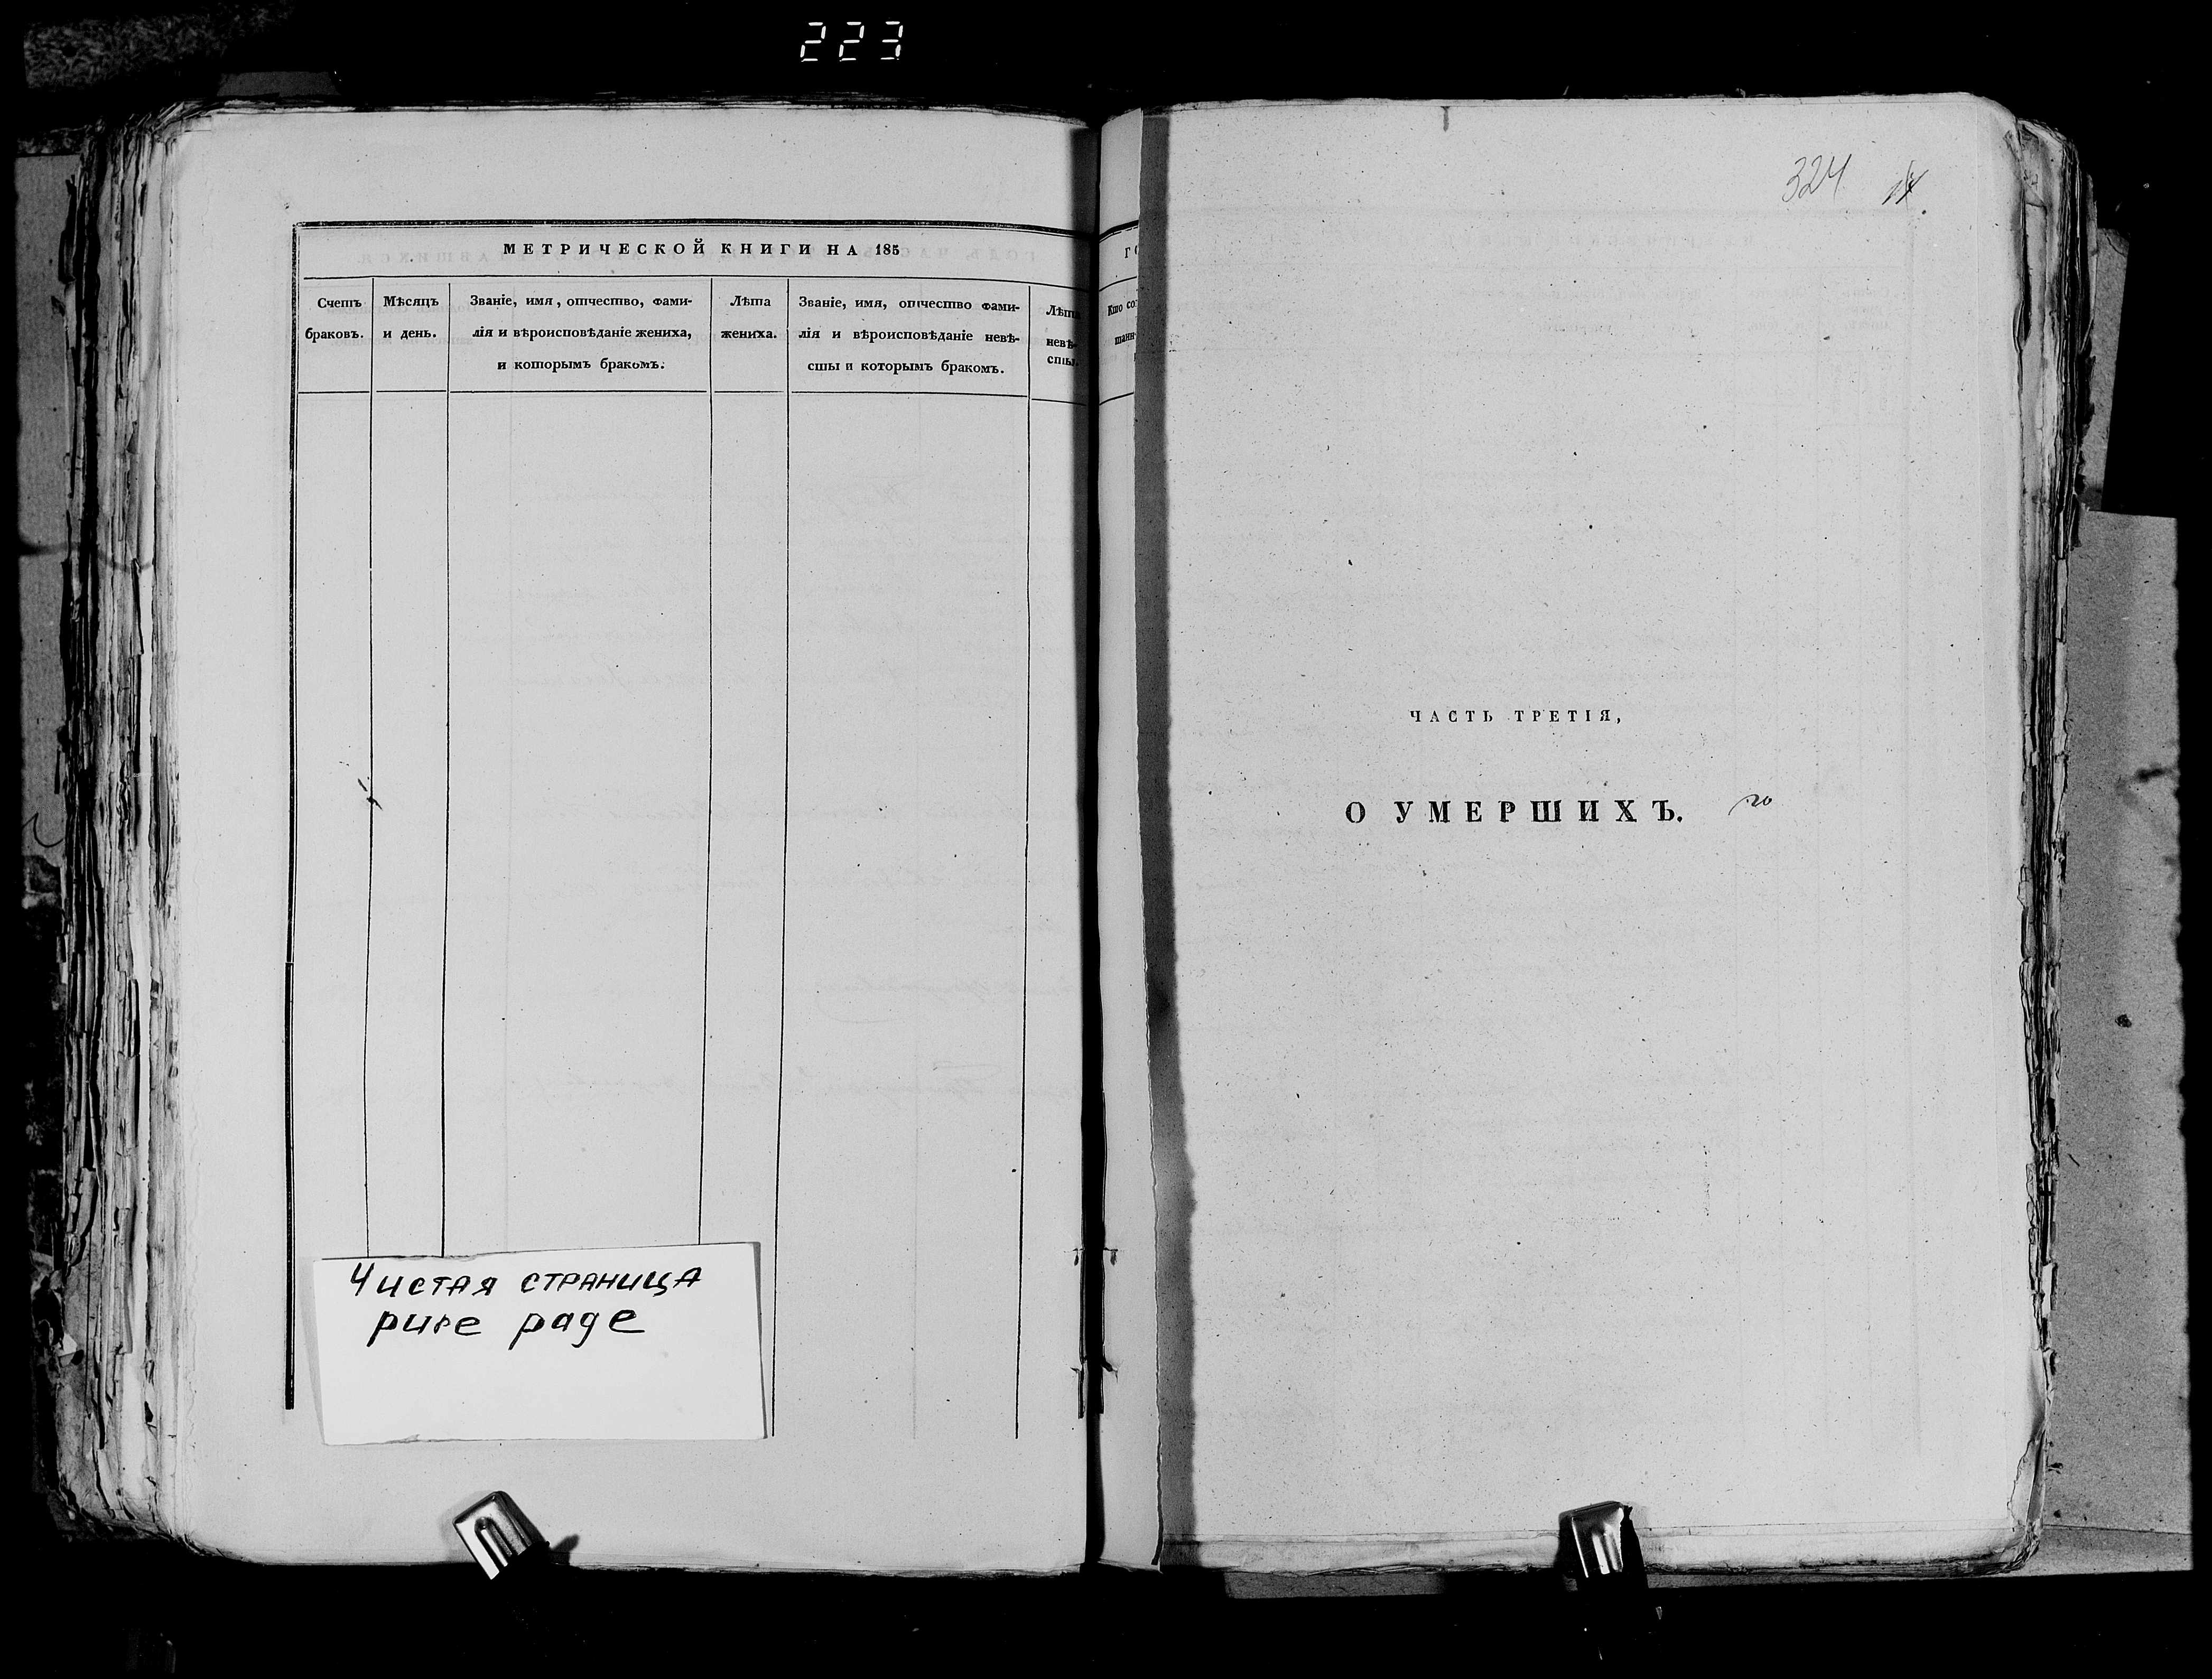 223
МЕТРИЧЕСКОЙ КНИГИ НА 185
Счетъ
браковъ.
Мѣсяцъ
и день.
Званіе, имя, отчество, фами-
лія и вѣроисповѣданіе жениха,
и которымъ бракомъ.
Лѣта
жениха.
Званіе, имя, отчество фами-
лія и вѣроисповѣданіе невѣ-
сты и которымъ бракомъ.
Лѣта
невѣ-
сты.
Кто
Чистая страница
pure page
324
ЧАСТЬ ТРЕТІЯ,
О УМЕРШИХЪ.